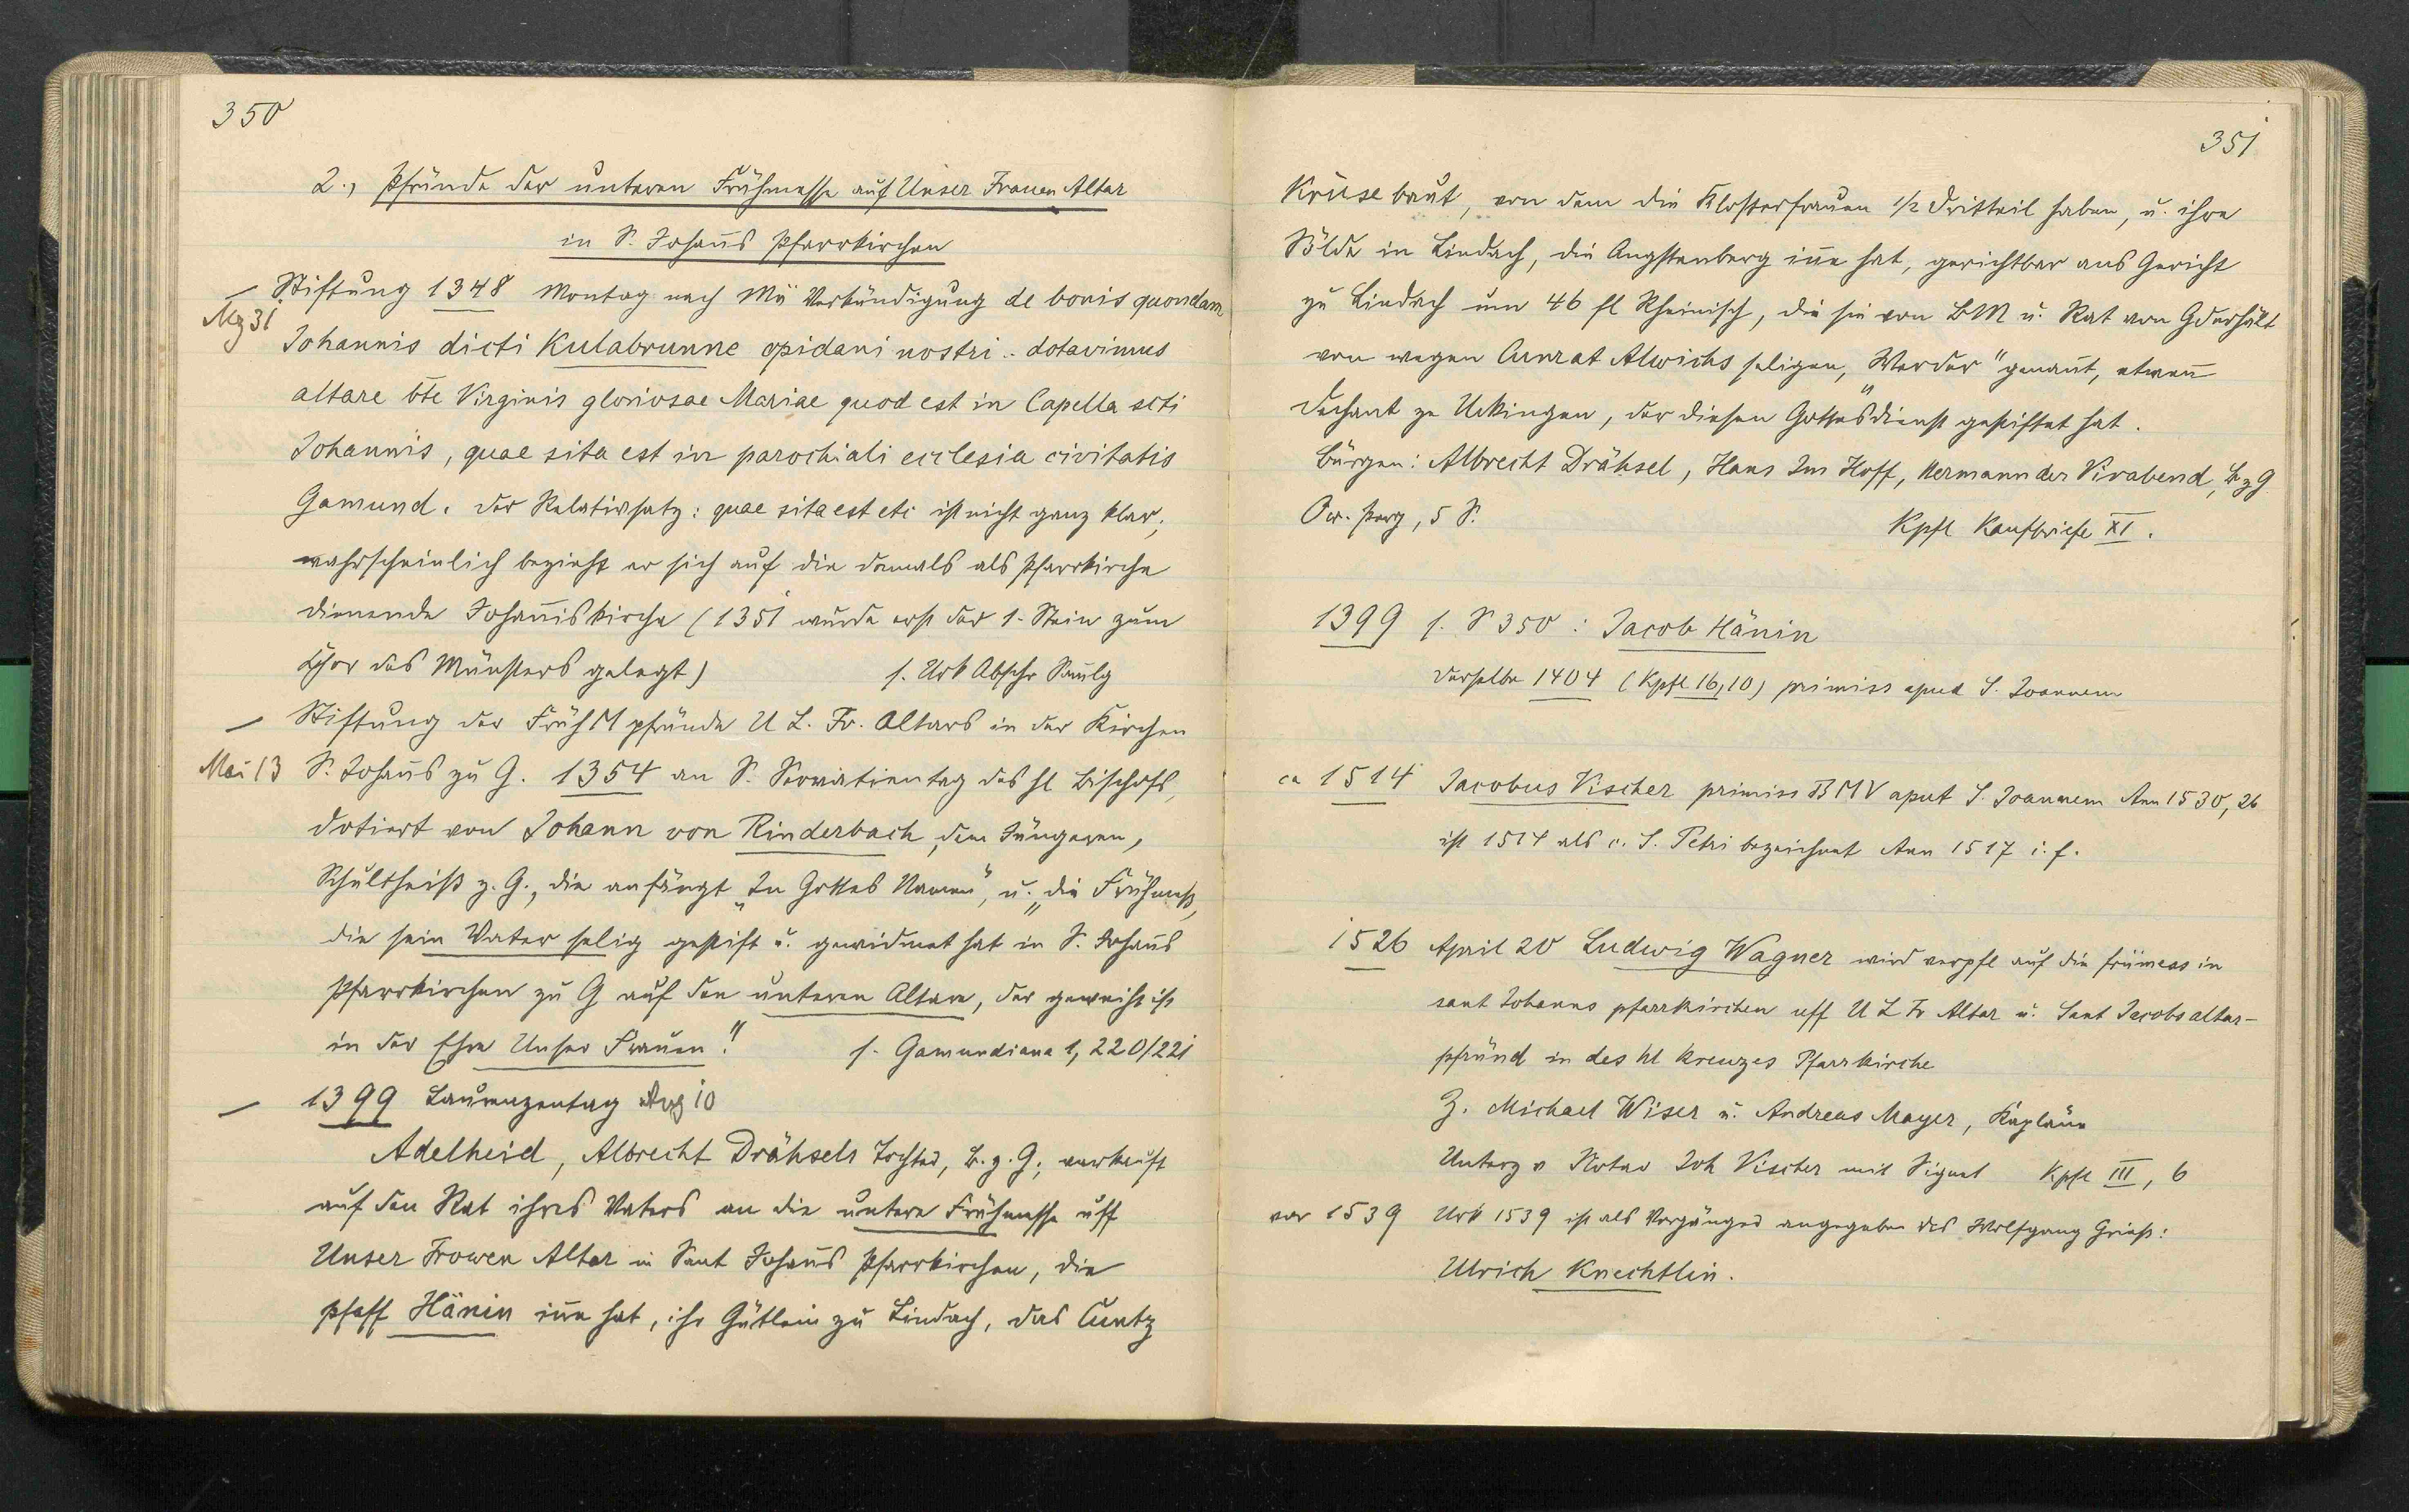 350
2., Pfründe der unteren Frühmesse auf Unser Frauen Altar
in S. Johañs Pfarrkirchen
– Stiftung 1348 Montag nach Mä Verkündigung de bonis quondam
Mz 31 Johannis dicti Kulabrunne opidani nostri .. dotavimus
altare bte Virginis gloriosae Mariae quod est in Capella scti
Johannis, quae sita est in parochiali ecclesia civitatis
Gamund. Der Relativsatz: quae sita est etc ist nicht ganz klar;
wahrscheinlich bezieht er sich auf die damals als Pfarrkirche
dienende Johañiskirche (1351 wurde erst der 1. Stein zum
Chor des Münsters gelegt) s. Urk Abschr Saulg
– Stiftung der Früh M pfründe U L. Fr. Altars in der Kirchen
Mai 13 S. Johañs zu G. 1354 an S. Servatientag des hl Bischofs,
dotiert von Johann von Rinderbach, dem Jüngeren,
Schultheiß z. G., die anfängt „In Gottes Namen", u. „die Frühmeß,
die sein Vater selig gestift u. gewidmet hat in S. Johañs
Pfarrkirchen zu G auf den unteren Altare, der geweiht ist
in der Ehre Unser Frauen." s. Gamundiana 1, 220/221
– 1399 Laurenzentag Aug 10
Adelheid, Albrecht Drähsels Tochter, B. z. G., verkauft
auf den Rat ihres Vaters an die untere Frühmesse uff
Unser Frowen Altar in Sant Johañs Pfarrkirchen, die
Pfaff Hänin iñe hat, ihr Gütlein zu Lindach, das Cuntz
351
Krüse baut, von dem die Klosterfrauen 1/2 Dritteil haben, u. ihre
Sölde in Lindach, die Angstenberg iñe hat, gerichtbar ans Gericht
zu Lindach um 46 fl Rheinisch, die sie von BM u. Rat von G erhält
von wegen Cunrat Alwichs seligen, „Werder" genañt, etwañ
Dechant zu Urkingen, der diesen Gottesdienst gestiftet hat.
Bürgen: Albrecht Drähsel, Hans Im Hoff, Hermann der Virabend, B z G
Or. Perg, 5 S. Kpfl Kaufbriefe XI.
1399 s. S 350: Jacob Hänin
derselbe 1404 (Kpfl 16,10) primiss apud S. Joannem
ca 1514 Jacobus Vischer primiss BMV aput S. Joannem Ann 1530, 26
ist 1514 als c. S. Petri bezeichnet Ann 1517 i. f.
1526 April 20 Ludwig Wagner wird verpfl auf die früмess in
sant Johanns pfarrkirchen uff U L Fr Altar u. Sant Jacobsaltar-
pfründ in des hl Kreuzes Pfarrkirche
Z. Michael Wiser u. Andreas Mayer, Kapläne
Unterz v Notar Joh Vischer mit Signet Kpfl III, 6
vor 1539 Urk 1539 ist als Vorgänger angegeben des Wolfgang Grieß:
Ulrich Knechtlin.